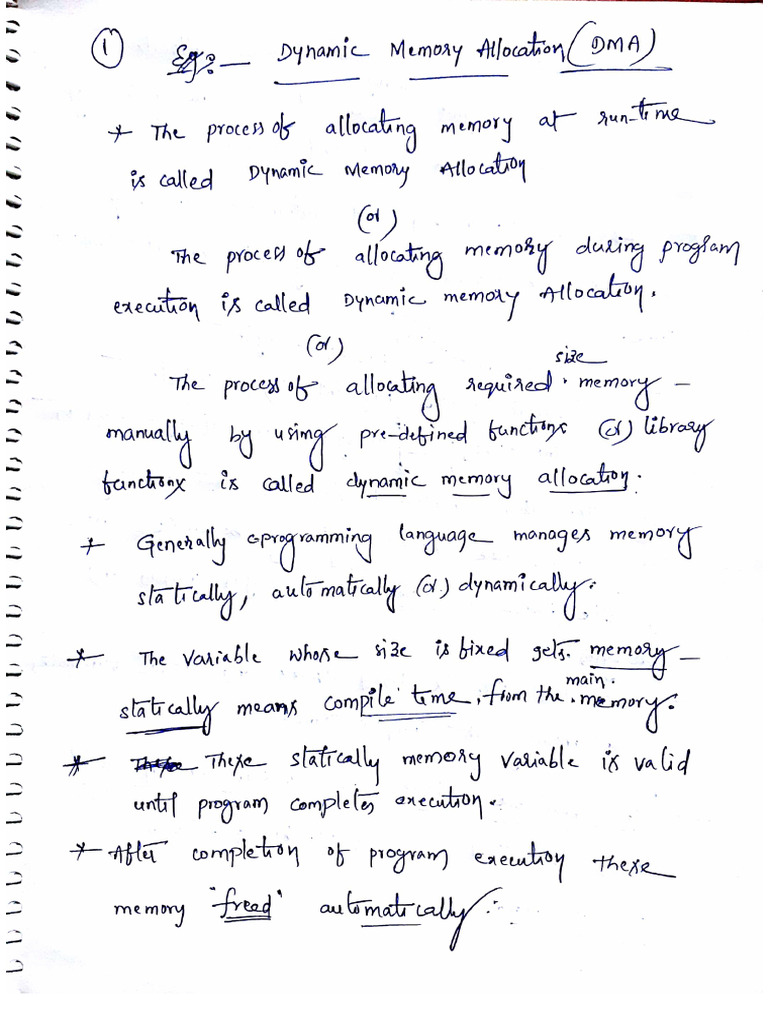 ① Eg:- Dynamic Memory Allocation (DMA)
* The process of allocating memory at run-time
is called Dynamic Memory Allocation
(or)
The process of allocating memory during program
execution is called Dynamic memory Allocation.
(or)
The process of allocating required size memory -
manually by using pre-defined functions (or) library
functions is called dynamic memory allocation.
* Generally c-programming language manages memory
statically, automatically (or) dynamically.
* The variable whose size is fixed gets memory -
statically means compile time, from the main memory.
* These statically memory variable is valid
until program completes execution.
* After completion of program execution these
memory "freed" automatically.